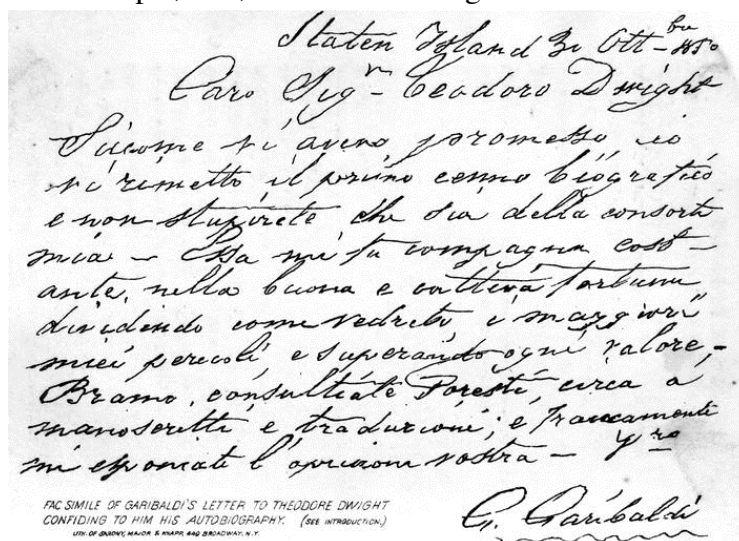 Staten Island 30 Ott-bre 1850
Caro Sig-r Teodoro Dwight
Siccome vi aveva promesso, io
vi rimetto il primo cenno biografico
e non stupirete che sia della consorte
mia - Essa mi fu compagna cost-
ante, nella buona e cattiva fortuna
dividendo come vedrete, i maggiori
miei pericoli, e superando ogni valore,-
Bramo, consultiate Foresti, circa a
manoscritti e traduzioni; e francamente
mi esponiate l'opinion vostra - Vro
G. Garibaldi
FAC SIMILE OF GARIBALDI'S LETTER TO THEODORE DWIGHT
CONFIDING TO HIM HIS AUTOBIOGRAPHY. (SEE INTRODUCTION.)
LITH. OF SARONY, MAJOR & KNAPP, 449 BROADWAY, N.Y.